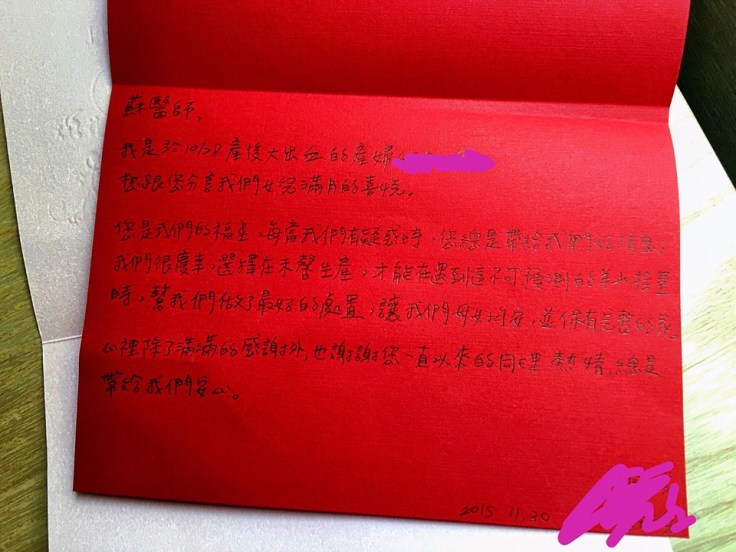 蘇醫師,
我是於10/28產後大出血的產婦
想跟您分享我們女兒滿月的喜悅。
您是我們的福星,每當我們有疑惑時,您總是帶給我們好消息。
我們很慶幸,選擇在禾馨生產,才能在遇到這不可預測的羊水栓塞
時,幫我們做了最好的處置,讓我們母女均安,並保有完整的家。
心裡除了滿滿的感謝外,也謝謝您一直以來的同理 熱情,總是
帶給我們安心。
2015.11.30